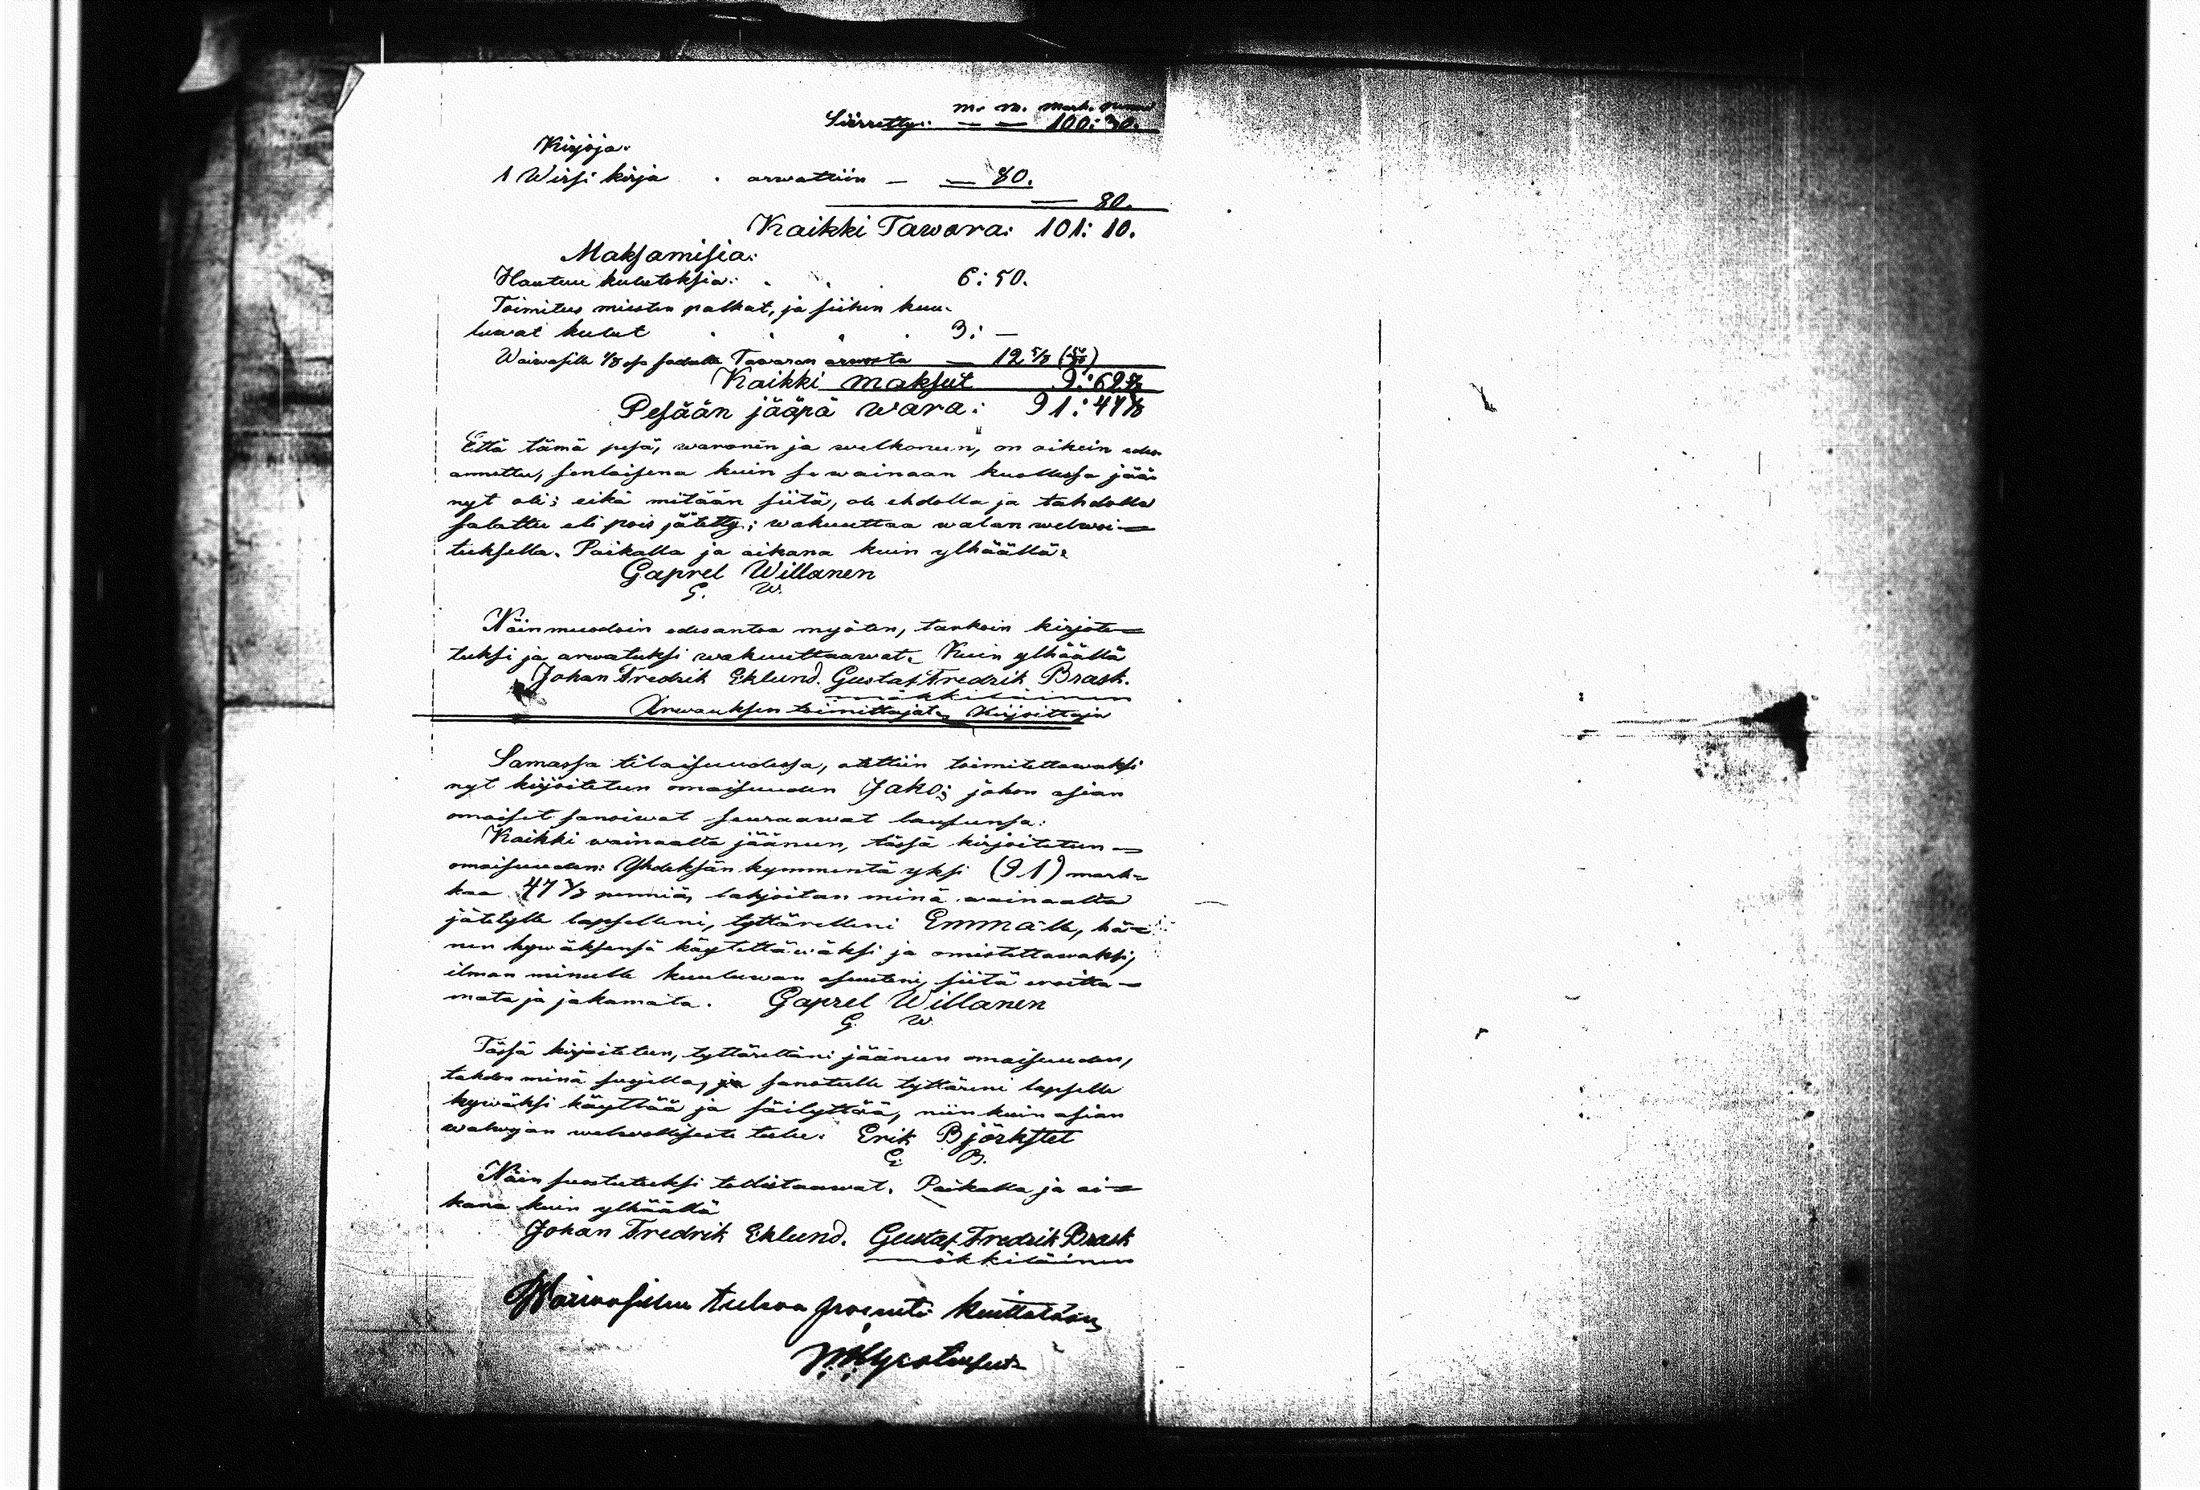 m. m. mark. penniä
Siirretty: — — 100: 30.
Kirjoja.
1 Wirsi kirja . arwattiin — — 80.
— 80.
Kaikki Tawara: 101: 10.
Maksamisia:
Hautuu kulutoksia: . . . 6: 50.
Toimitus miesten palkat, ja siihen kuu-
luwat kulut . . . . 3: —
Waiwasille 1/8 osa sadalta Tawaran arwosta — 12 5/8
Kaikki maksut 9: 62 5/8
Pesään jääpä wara: 91: 47 3/8
Että tämä pesä, waronen ja welkoneen, on oikein eden
annettu, senlaisena kuin se wainaan kuollessa jää-
nyt oli; eikä mitään siitä, ole ehdolla ja tahdolla
salattu eli pois jätetty; wakuuttaa walan welwoi-
tuksella. Paikalla ja aikana kuin ylhäällä:
Gaprel Willanen
G. W.
Näinmuodoin edesantoa myöten, tarkoin kirjote-
tuksi ja arwatuksi wakuuttaawat. Kuin ylhäällä
Johan Fredrik Eklund. Gustaf Fredrik Brask.
mökkiläinen
Arwauksen toimittajat. Kirjoittaja
Samassa tilaisuudessa, otettiin toimitettawaksi
nyt kirjoitetun omaisuuden Jako; johon asian
omaiset sanoiwat seuraawat lausunsa:
Kaikki wainaalta jäänen, tässä kirjoitetun
omaisuuden: Yhdeksän kymmentä yksi (91) mark-
kaa 47 3/8 penniä, lahjoitan minä wainaalta
jätetylle lapselleni, tyttärelleni Emmalle, hä-
nen hywäksensä käytettäwäksi ja omistettawaksi,
ilman minulle kuuluwan osuuteni, siitä eroitta-
mata ja jakamata. Gaprel Willanen
G. W.
Tässä kirjoitetun, tyttäreltäni jäänen omaisuuden,
tahdon minä suojella, ja sanotulle tyttäreni lapselle
hywäksi käyttää ja säilyttää, niin kuin asian
walwojan welwollisesti tulee: Erik Björkstet
E. B.
Näin suostutuksi todistaawat. Paikalla ja ai-
kana kuin ylhäällä
Johan Fredrik Eklund. Gustaf Fredrik Brask
mökkiläinen
Waiwasillen tulewa prosentti kuitataan,